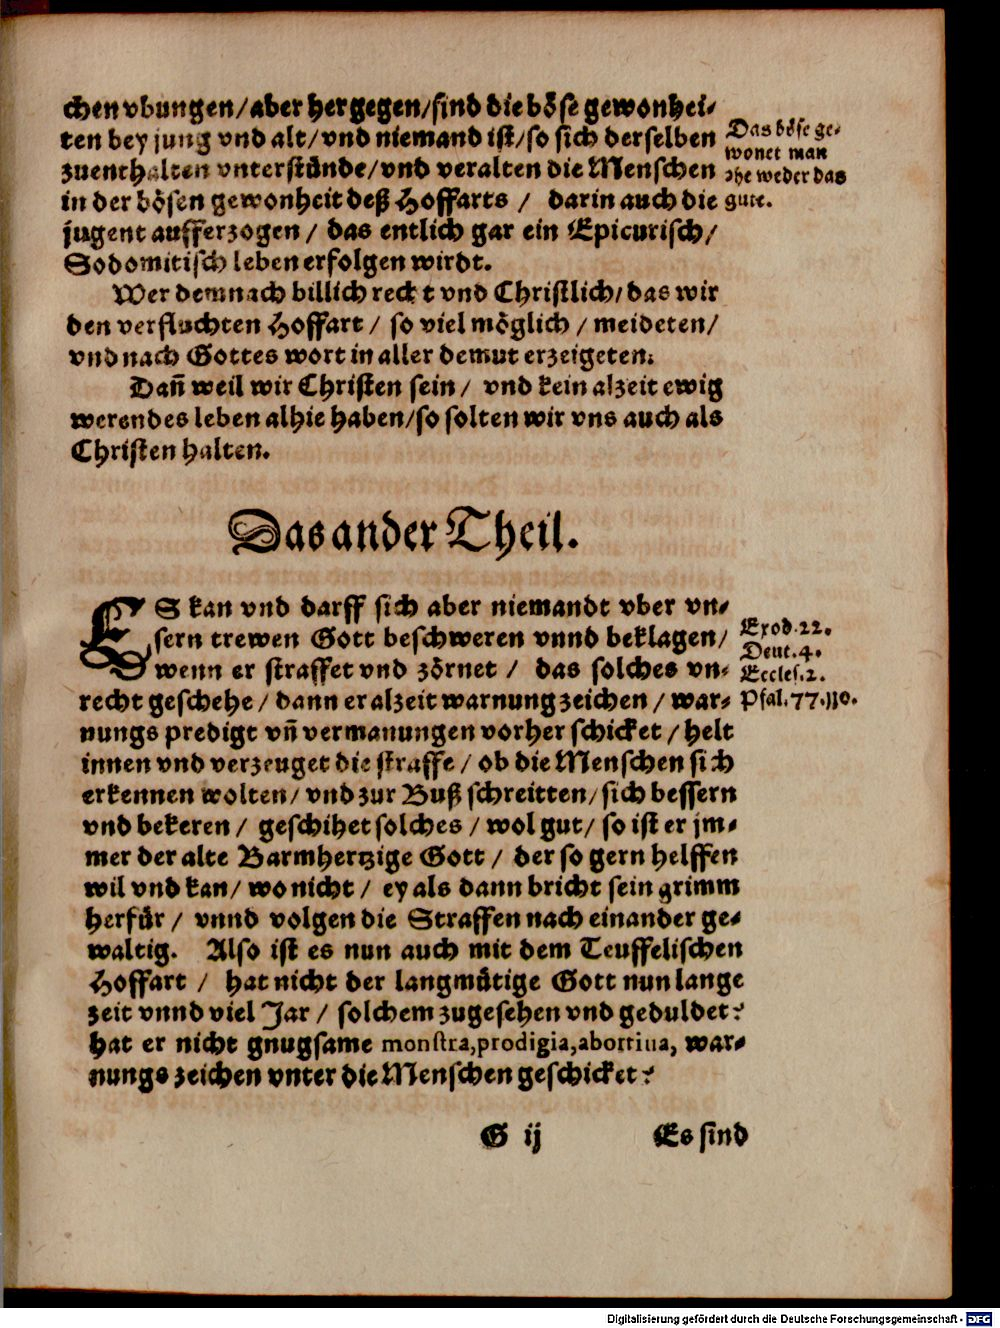 chen vbungen/aber hergegen/sind die böse gewonhei-
ten bey jung vnd alt/vnd niemand ist/so sich derselben
zuenthalten vnterstünde/vnd veralten die Menschen
in der bösen gewonheit deß Hoffarts / darin auch die
jugent aufferzogen / das entlich gar ein Epicurisch/
Sodomitisch leben erfolgen wirdt.
Das böse ge-
wonet man
ehe weder das
gute.
Wer demnach billich recht vnd Christlich/das wir
den verfluchten Hoffart / so viel möglich / meideten/
vnd nach Gottes wort in aller demut erzeigeten.
Dañ weil wir Christen sein / vnd kein alzeit ewig
werendes leben alhie haben/so solten wir vns auch als
Christen halten.
Das ander Theil.
ES kan vnd darff sich aber niemandt vber vn-
sern trewen Gott beschweren vnnd beklagen/
wenn er straffet vnd zörnet / das solches vn-
recht geschehe / dann er alzeit warnung zeichen / war-
nungs predigt vñ vermanungen vorher schicket / helt
innen vnd verzeuget die straffe / ob die Menschen sich
erkennen wolten/ vnd zur Buß schreitten/sich bessern
vnd bekeren / geschihet solches / wol gut/ so ist er jm-
mer der alte Barmhertzige Gott / der so gern helffen
wil vnd kan/ wo nicht / ey als dann bricht sein grimm
herfür / vnnd volgen die Straffen nach einander ge-
waltig. Also ist es nun auch mit dem Teuffelischen
Hoffart / hat nicht der langmütige Gott nun lange
zeit vnnd viel Jar / solchem zugesehen vnd geduldet?
hat er nicht gnugsame monstra,prodigia,abortiua, war-
nungs zeichen vnter die Menschen geschicket?
Exod.22.
Deut.4.
Eccles.2.
Psal.77.110.
G ij Es sind
Digitalisierung gefördert durch die Deutsche Forschungsgemeinschaft - DFG